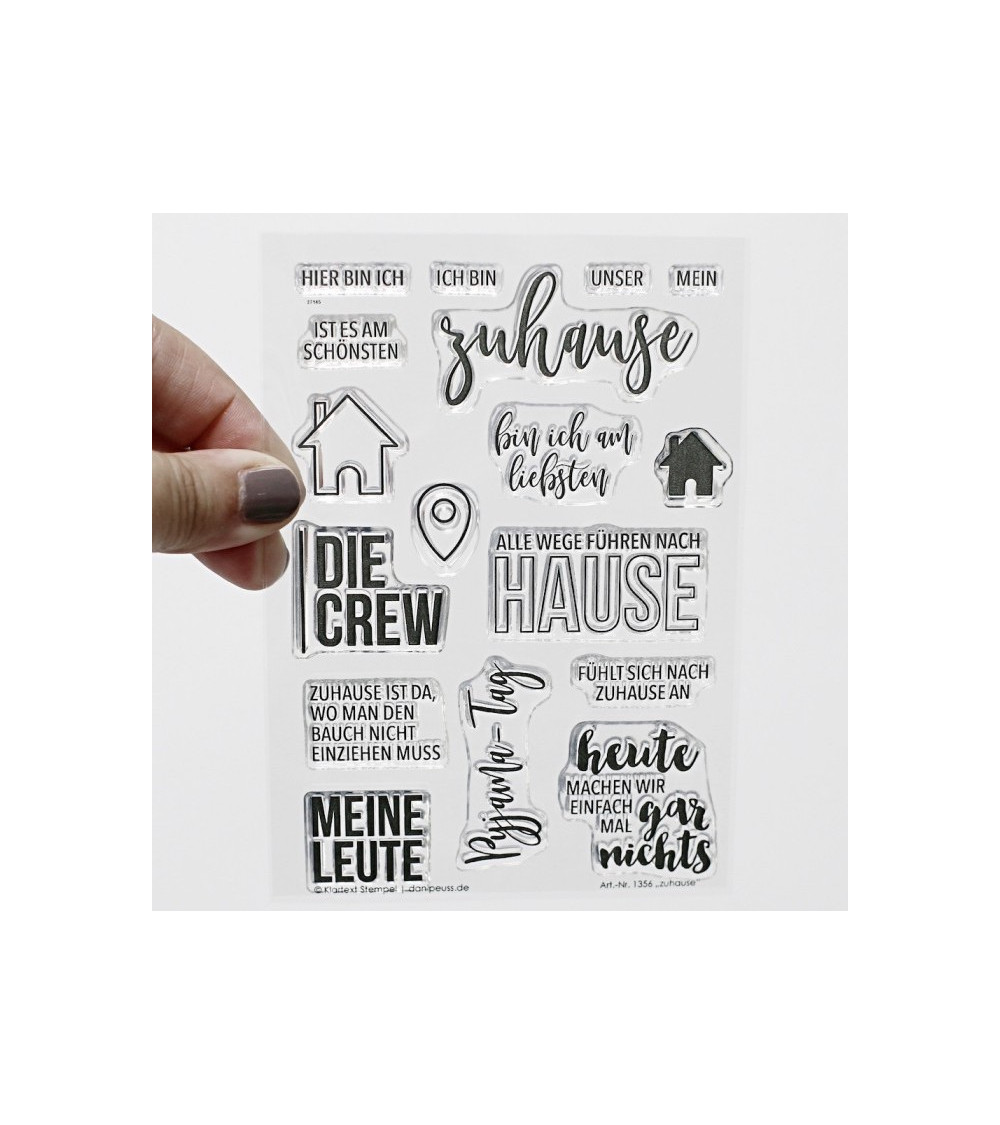 HIER BIN ICH
ICH BIN
UNSER
MEIN
37145
IST ES AM
SCHÖNSTEN
zuhause
bin ich am
liebsten
DIE
CREW
ALLE WEGE FÜHREN NACH
HAUSE
ZUHAUSE IST DA,
WO MAN DEN
BAUCH NICHT
EINZIEHEN MUSS
Pyjama-Tag
FÜHLT SICH NACH
ZUHAUSE AN
heute
MACHEN WIR
EINFACH
MAL
gar
nichts
MEINE
LEUTE
© Klartext Stempel | danipeuss.de
Art.-Nr. 1356 „zuhause"